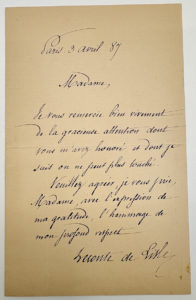 Paris 3 avril 87
Madame,
Je vous remercie bien vivement
de la gracieuse attention dont
vous m'avez honoré et dont je
suis on ne peut plus touché.
Veuillez agréer, je vous prie,
Madame, avec l'expression de
ma gratitude l'hommage de
mon profond respect
Leconte de Lisle